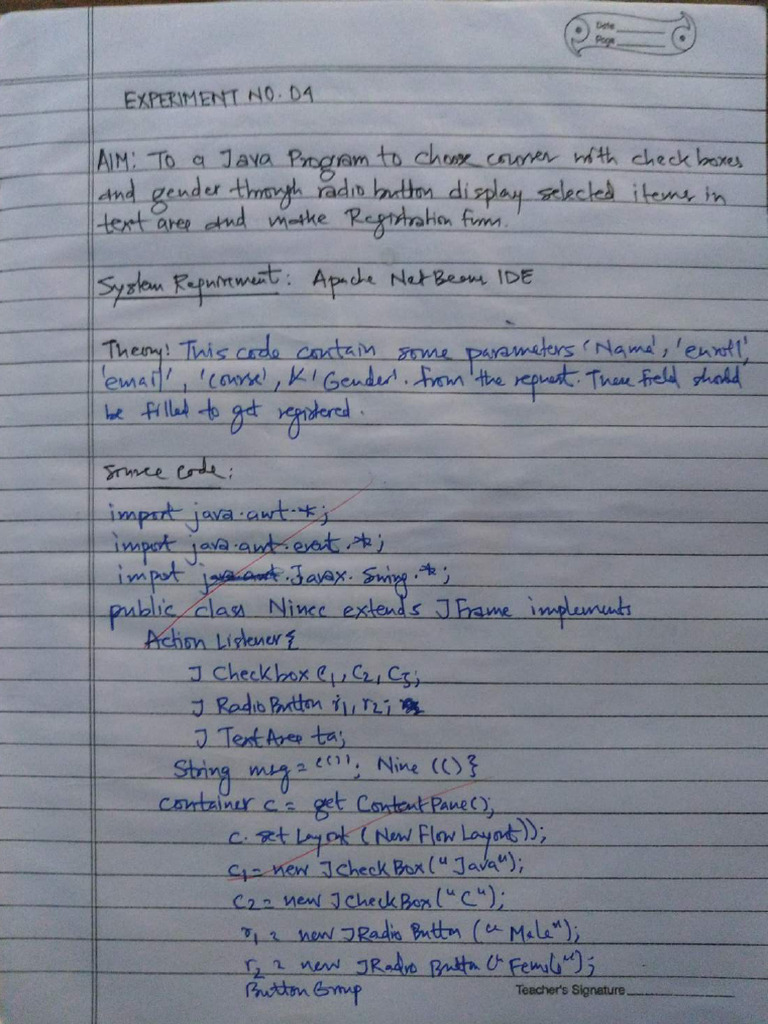 Date
Page
EXPERIMENT NO. 04
AIM: To a Java Program to choose courses with check boxes
and gender through radio button display selected items in
text area and make Registration form.
System Requirement: Apache NetBeans IDE
Theory: This code contain some parameters 'Name', 'enroll',
'email', 'course', & 'Gender'. from the request. These field should
be filled to get registered.
Source code:
import java.awt.*;
import java.awt.event.*;
import java.awt. Javax. Swing.*;
public class Ninee extends JFrame implements
Action Listener{
J Checkbox c1, c2, c3;
J RadioButton r1, r2;
J TextArea ta;
String msg = ""; Nine (() }
Container c = get ContentPane();
c. set Layout (New Flow Layout));
c1 = new JCheck Box ("Java");
c2 = new JCheck Box ("C");
r1 = new JRadio Button ("Male");
r2 = new JRadio Button ("Female");
Button Group
Teacher's Signature